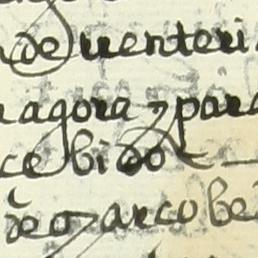 de rrenteri
agora y para
cebido
arcobe